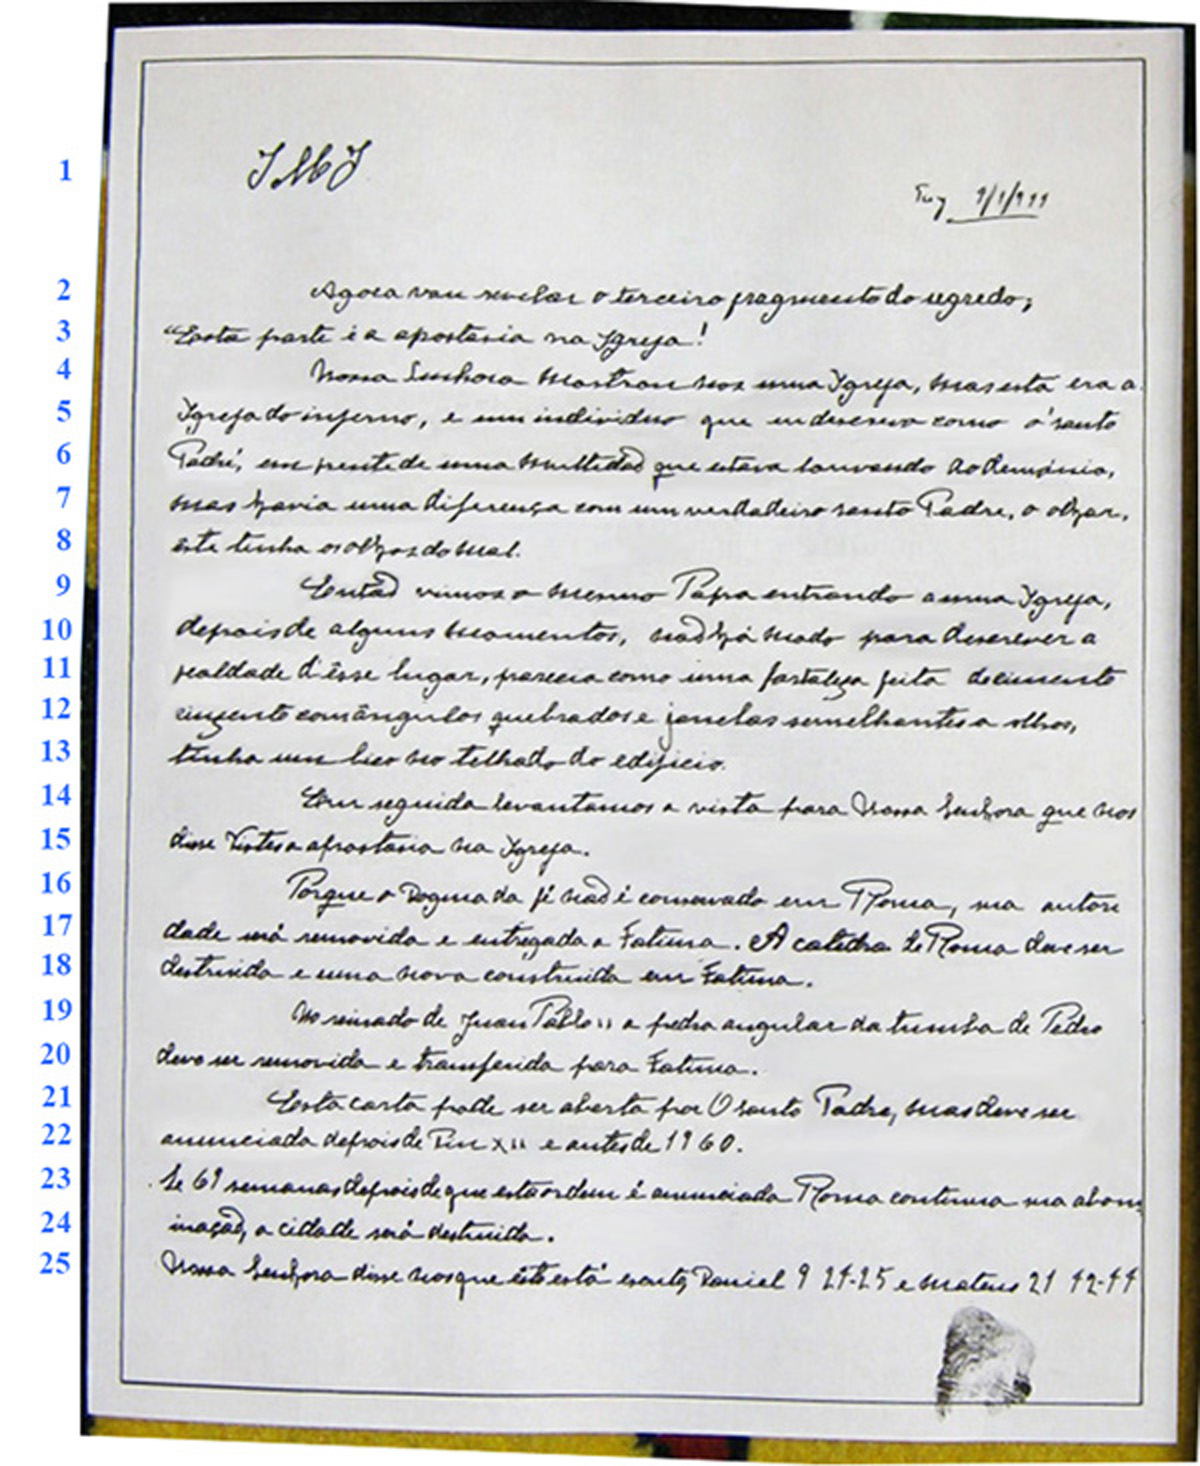 1 JMJ
Tuy 9/1/944
2 Agora vou revelar o terceiro fragmento do segredo;
3 "Esta parte é a apostasia na Igreja!
4 Nossa Senhora mostrou nos uma Igreja, mas esta era a
5 Igreja do inferno, e um individuo que eu descrevo como o santo
6 Padre, em frente de uma multidaõ que estava louvando ao demónio,
7 mas havia uma diferença com um verdadeiro santo Padre, o olhar,
8 este tinha os olhos do mal.
9 Entaõ vimos o mesmo Papa entrando a uma Igreja,
10 depois de alguns momentos, naõ há modo para descrever a
11 fealdade d'êsse lugar, parecia como uma fortaleza feita de cimento
12 cinzento com ângulos quebrados e janelas semelhantes a olhos,
13 tinha um bico no telhado do edificio.
14 Em seguida levantamos a vista para Nossa Senhora que nos
15 disse Vistes a apostasia na Igreja.
16 Porque o Dogma da fé naõ é conservado em Roma, sua autori
17 dade será removida e entregada a Fatima. A catedra de Roma deve ser
18 destruida e uma nova construida em Fatima.
19 No reinado de Juan Pablo II a pedra angular da tumba de Pedro
20 deve ser removida e transferida para Fatima.
21 Esta carta pode ser aberta por O santo Padre, mas deve ser
22 anunciada depois de Pin XII e antes de 1960.
23 Se 69 semanas depois de que esta ordem é anunciada Roma continua sua abom
24 inaçaõ, a cidade será destruida.
25 Nossa Senhora disse nos que êste está escrito, Daniel 9 24-25 e Mateus 21 42-44